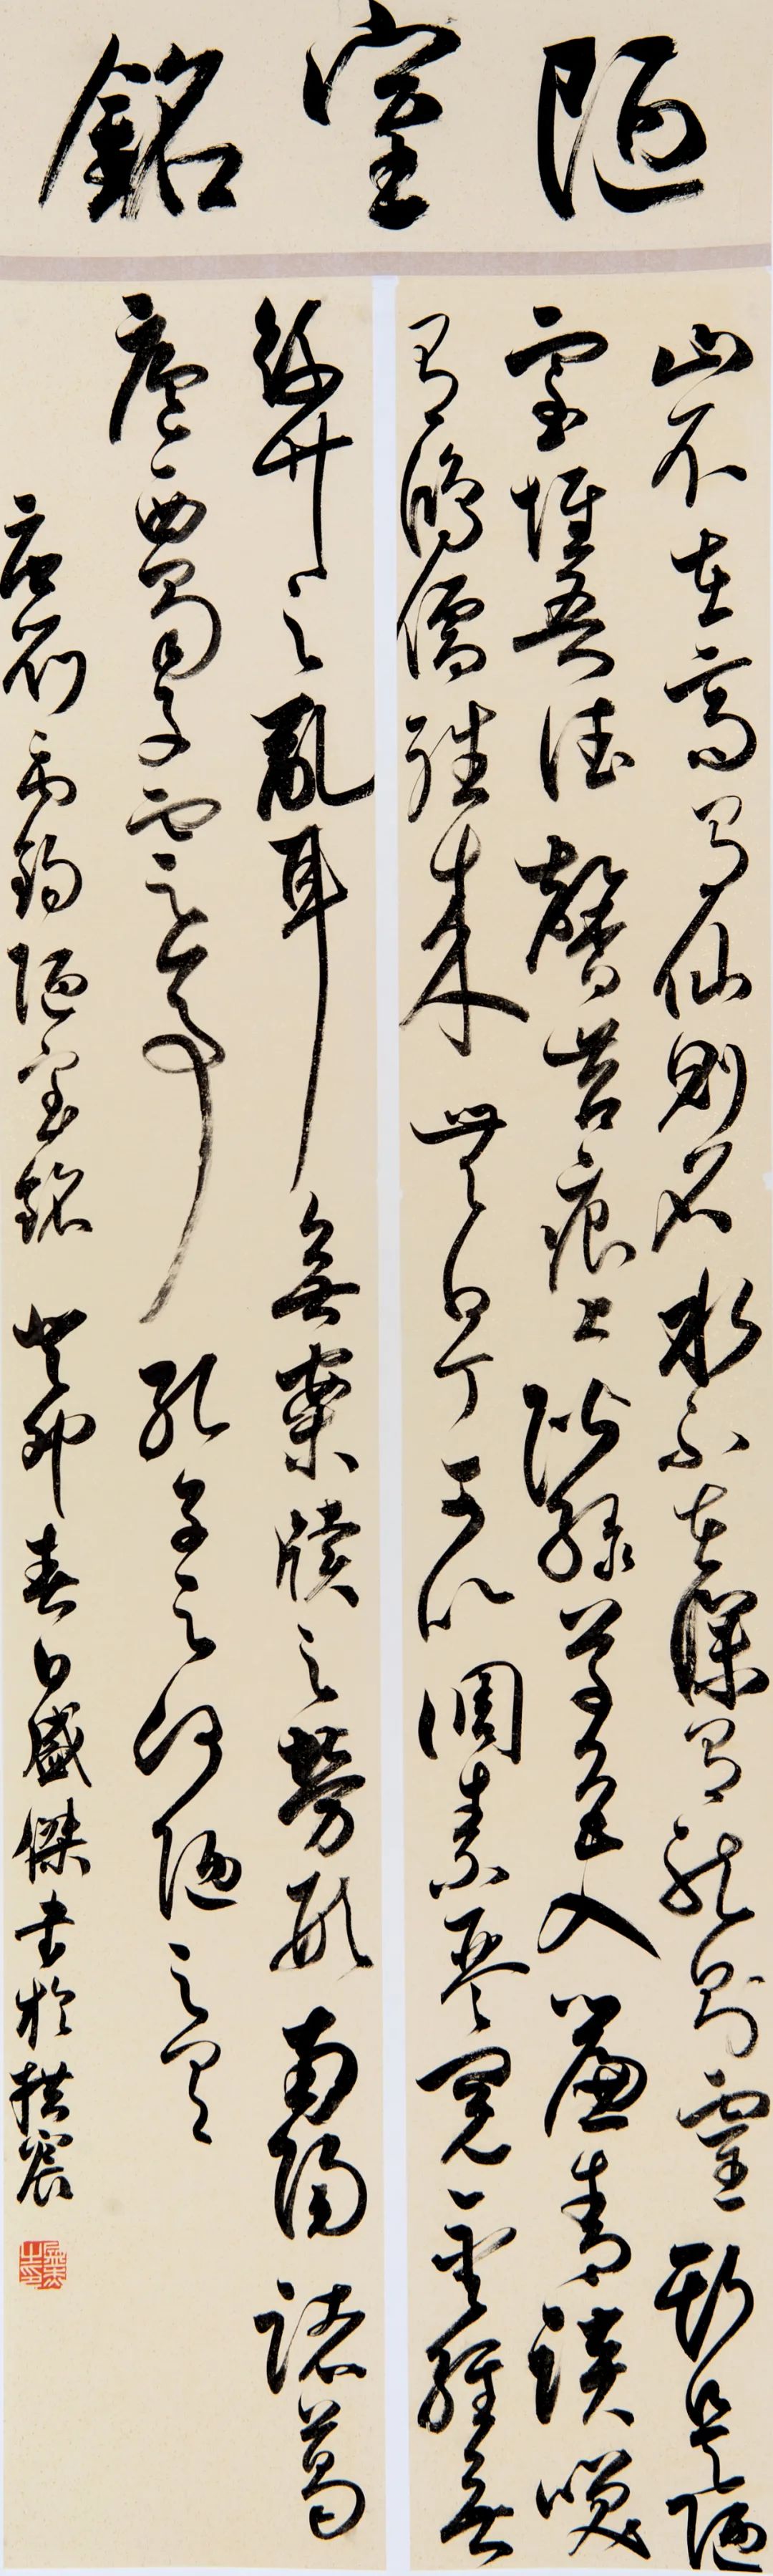 陋室銘
山不在高有仙則名水不在深有龍則靈斯是陋
室惟吾德馨苔痕上階綠草色入簾青談笑
有鴻儒往來無白丁可以調素琴閱金經無
絲竹之亂耳無案牘之勞形南陽諸葛
廬西蜀子雲亭孔子云何陋之有
唐劉禹錫陋室銘癸卯春日盛傑書於拱宸